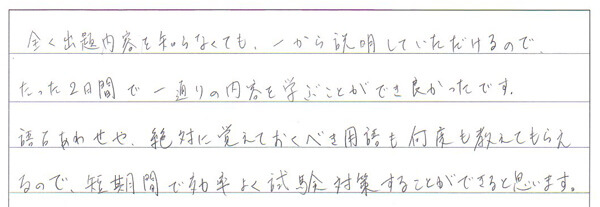 全く出題内容を知らなくても、一から説明していただけるので、
たった2日間で一通りの内容を学ぶことができ良かったです。
語呂あわせや、絶対に覚えておくべき用語も何度も教えてもらえ
るので、短期間で効率よく試験対策することができると思います。